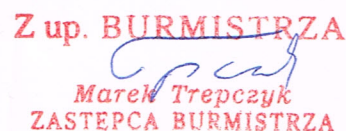 Z up. BURMISTRZA
Marek Trepczyk
ZASTĘPCA BURMISTRZA